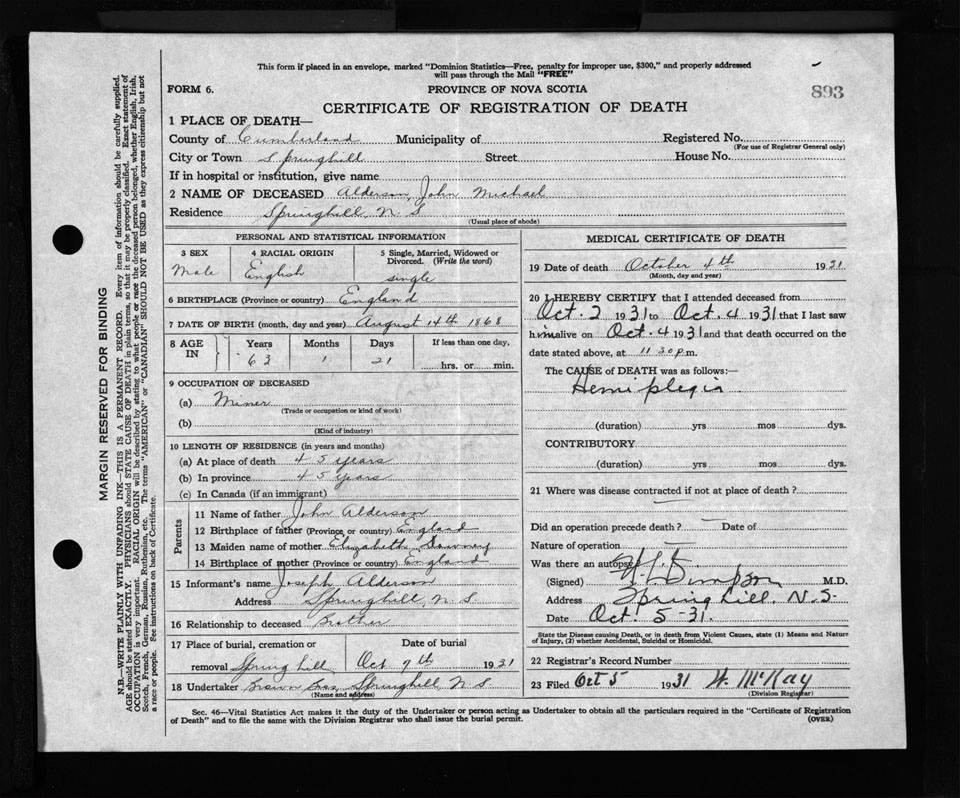 This form if placed in an envelope, marked "Dominion Statistics—Free, penalty for improper use, $300," and properly addressed
will pass through the Mail "FREE"
893
FORM 6.
PROVINCE OF NOVA SCOTIA
CERTIFICATE OF REGISTRATION OF DEATH
1 PLACE OF DEATH—
County of Cumberland Municipality of Registered No.
(For use of Registrar General only)
City or Town Springhill Street House No.
If in hospital or institution, give name
2 NAME OF DECEASED Alderson, John Michael
Residence Springhill, N. S
(Usual place of abode)
PERSONAL AND STATISTICAL INFORMATION
3 SEX Male
4 RACIAL ORIGIN English
5 Single, Married, Widowed or
Divorced. (Write the word)
single
6 BIRTHPLACE (Province or country) England
7 DATE OF BIRTH (month, day and year) August 14th 1868
8 AGE IN Years Months Days If less than one day,
63 1 21 hrs. or min.
9 OCCUPATION OF DECEASED
(a) Miner
(Trade or occupation or kind of work)
(b)
(Kind of industry)
10 LENGTH OF RESIDENCE (in years and months)
(a) At place of death 45 years
(b) In province 45 years
(c) In Canada (if an immigrant)
Parents
11 Name of father John Alderson
12 Birthplace of father (Province or country) England
13 Maiden name of mother Elizabeth
14 Birthplace of mother (Province or country) England
15 Informant's name Joseph Alderson
Address Springhill, N. S.
16 Relationship to deceased Brother
17 Place of burial, cremation or
removal Springhill
Date of burial
Oct 7th 1931
18 Undertaker Brown Bros, Springhill, N S.
(Name and address)
MEDICAL CERTIFICATE OF DEATH
19 Date of death October 4th 1931
(Month, day and year)
20 I HEREBY CERTIFY that I attended deceased from
Oct. 2 1931 to Oct. 4 1931 that I last saw
him alive on Oct. 4 1931 and that death occurred on the
date stated above, at 11 30 p m.
The CAUSE of DEATH was as follows:—
Hemiplegia
(duration) yrs mos dys.
CONTRIBUTORY
(duration) yrs mos dys.
21 Where was disease contracted if not at place of death?
Did an operation precede death? — Date of
Nature of operation —
Was there an autopsy
(Signed) Simpson M.D.
Address Springhill, N.S-
Date Oct. 5-31.
State the Disease causing Death, or in death from Violent Causes, state (1) Means and Nature
of Injury, (2) whether Accidental, Suicidal or Homicidal.
22 Registrar's Record Number
23 Filed Oct 5 1931 W. McKay
(Division Registrar)
Sec. 46—Vital Statistics Act makes it the duty of the Undertaker or person acting as Undertaker to obtain all the particulars required in the "Certificate of Registration
of Death" and to file the same with the Division Registrar who shall issue the burial permit.
(OVER)
MARGIN RESERVED FOR BINDING
N.B.—WRITE PLAINLY WITH UNFADING INK—THIS IS A PERMANENT RECORD. Every item of information should be carefully supplied.
AGE should be stated EXACTLY. PHYSICIANS should STATE CAUSE OF DEATH in plain terms, so that it may be properly classified. Exact statement of
OCCUPATION is very important. RACIAL ORIGIN will be described by stating to what people or race the deceased person belonged, whether English, Irish,
Scotch, French, German, Russian, Ruthenian, etc. The terms "AMERICAN" or "CANADIAN" SHOULD NOT BE USED as they express citizenship but not
a race or people. See instructions on back of Certificate.